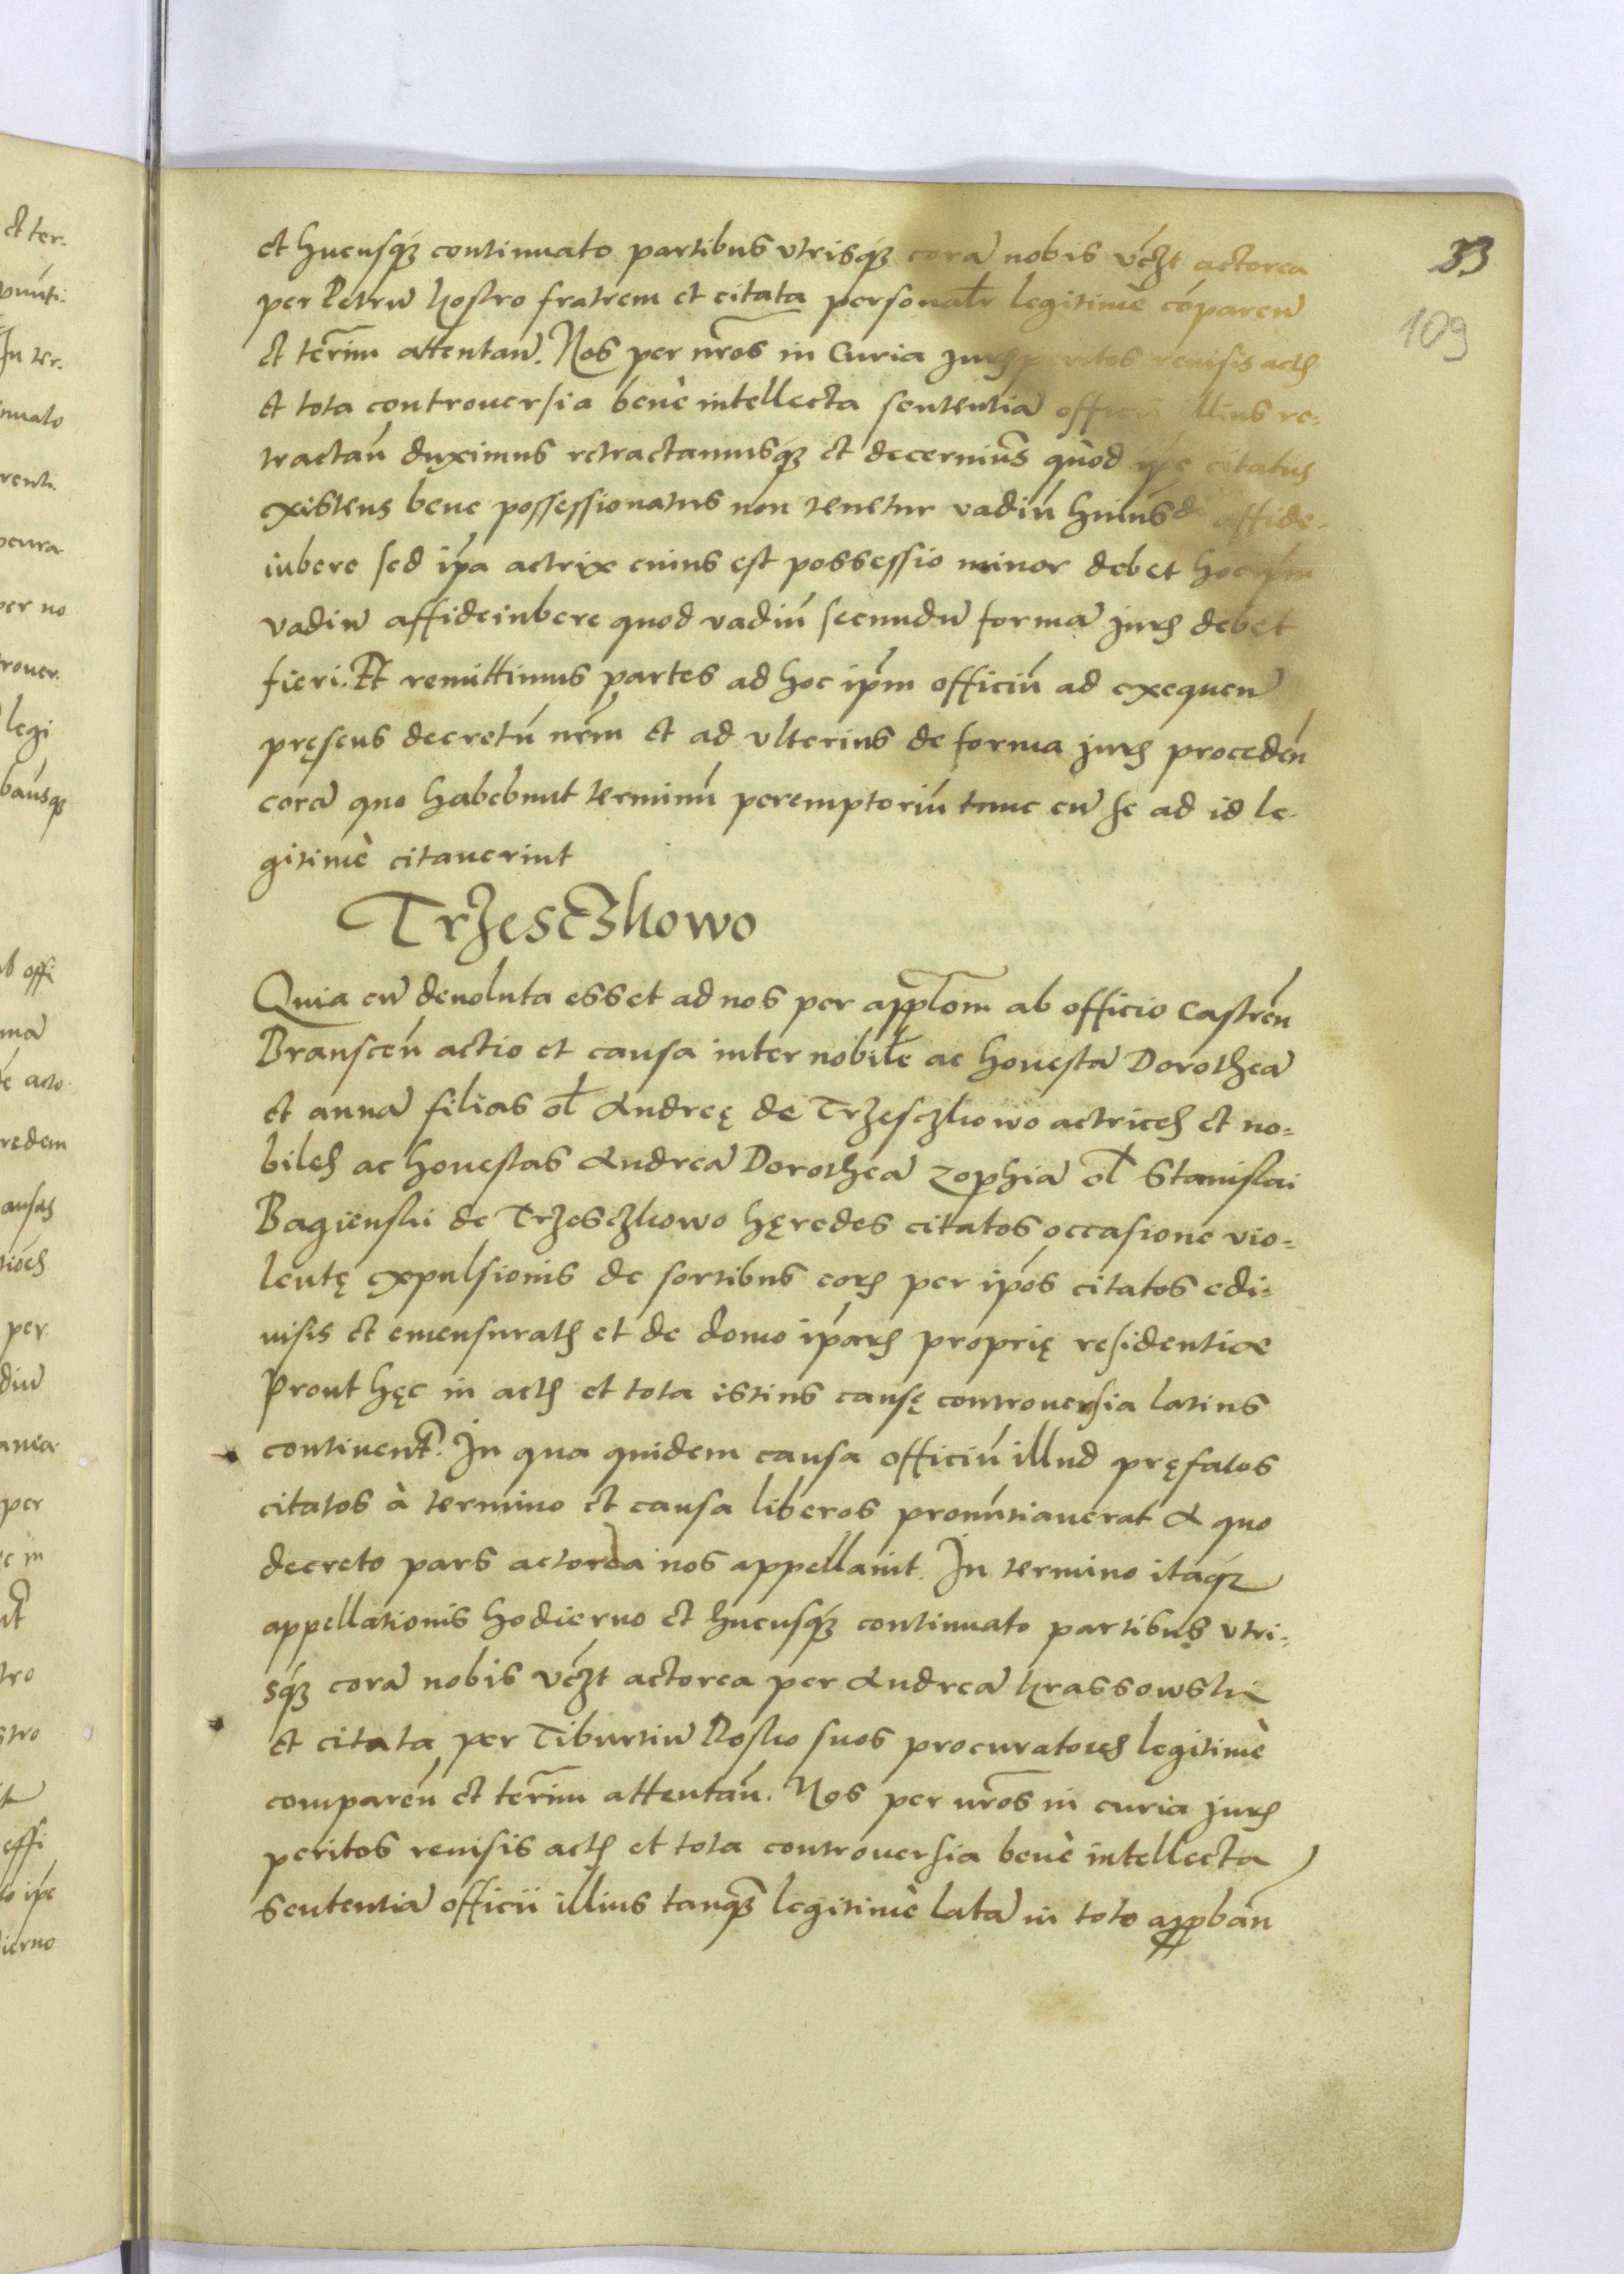 33
109
et hucusq́ꝫ continuato partibus vtrisq́ꝫ corã nobis vcꝫt actorea
per Petrũ Kostro fratrem et citata personalr legitimè cõparen̄
et termĩ attentan̄. Nos per nr̃os in Curia juris peritos reuisis actis
et tota controuersia benè intellecta sententiã officii illius re=
tractan̄ duximus retractamusq́ꝫ et decernimus quòd ip̃e citatus
existens bene possessionatus non tenetur vadiũ huiusd̃ affide-
iubere sed ip̃a actrix cuius est possessio minor debet hoc ip̃m
vadiũ affideiubere quod vadiũ secundũ formã juris debet
fieri. Et remittimus partes ad hoc ip̃m officiũ ad exequen̄
pręsens decretũ nr̃m et ad vlterius de forma juris proceden̄
corã quo habebunt terminũ peremptoriũ tunc cũ se ad id le-
gitimè citauerint
Trzesczkowo
Quia cũ deuoluta esset ad nos per applõm ab officio Castren̄
Branscen̄ actio et causa inter nobiles ac honestã Dorotheã
et annã filias ol Andreę de Trzesczkowo actrices et no=
biles ac honestas Andreã Dorotheã Zophiã ol Stanislai
Bagienski de Trzesczkowo hęredes citatos occasione vio=
lentę expulsionis de sortibus eorũ per ip̃os citatos edi=
uisis et emensuratis et de domo ip̃arũ proprię residentiae
Prout hęc in actis et tota istius causę controuersia latius
continent̃. In qua quidem causa officiũ illud pręfatos
citatos à termino et causa liberos pronũtiauerat A quo
decreto pars actorea nos appellauit. In termino itaq́ꝫ
appellationis hodierno et hucusq́ꝫ continuato partibus vtri=
sq́ꝫ corã nobis vcꝫt actorea per Andreã Krassowski
et citata per Tiburtiũ Rosko suos procuratores legitimè
comparen̄ et termĩ attentan̄. Nos per nr̃os in curia juris
peritos reuisis actis et tota controuersia benè intellecta
sententiã officii illius tanq̃ꝫ legitimè latã in toto approban̄